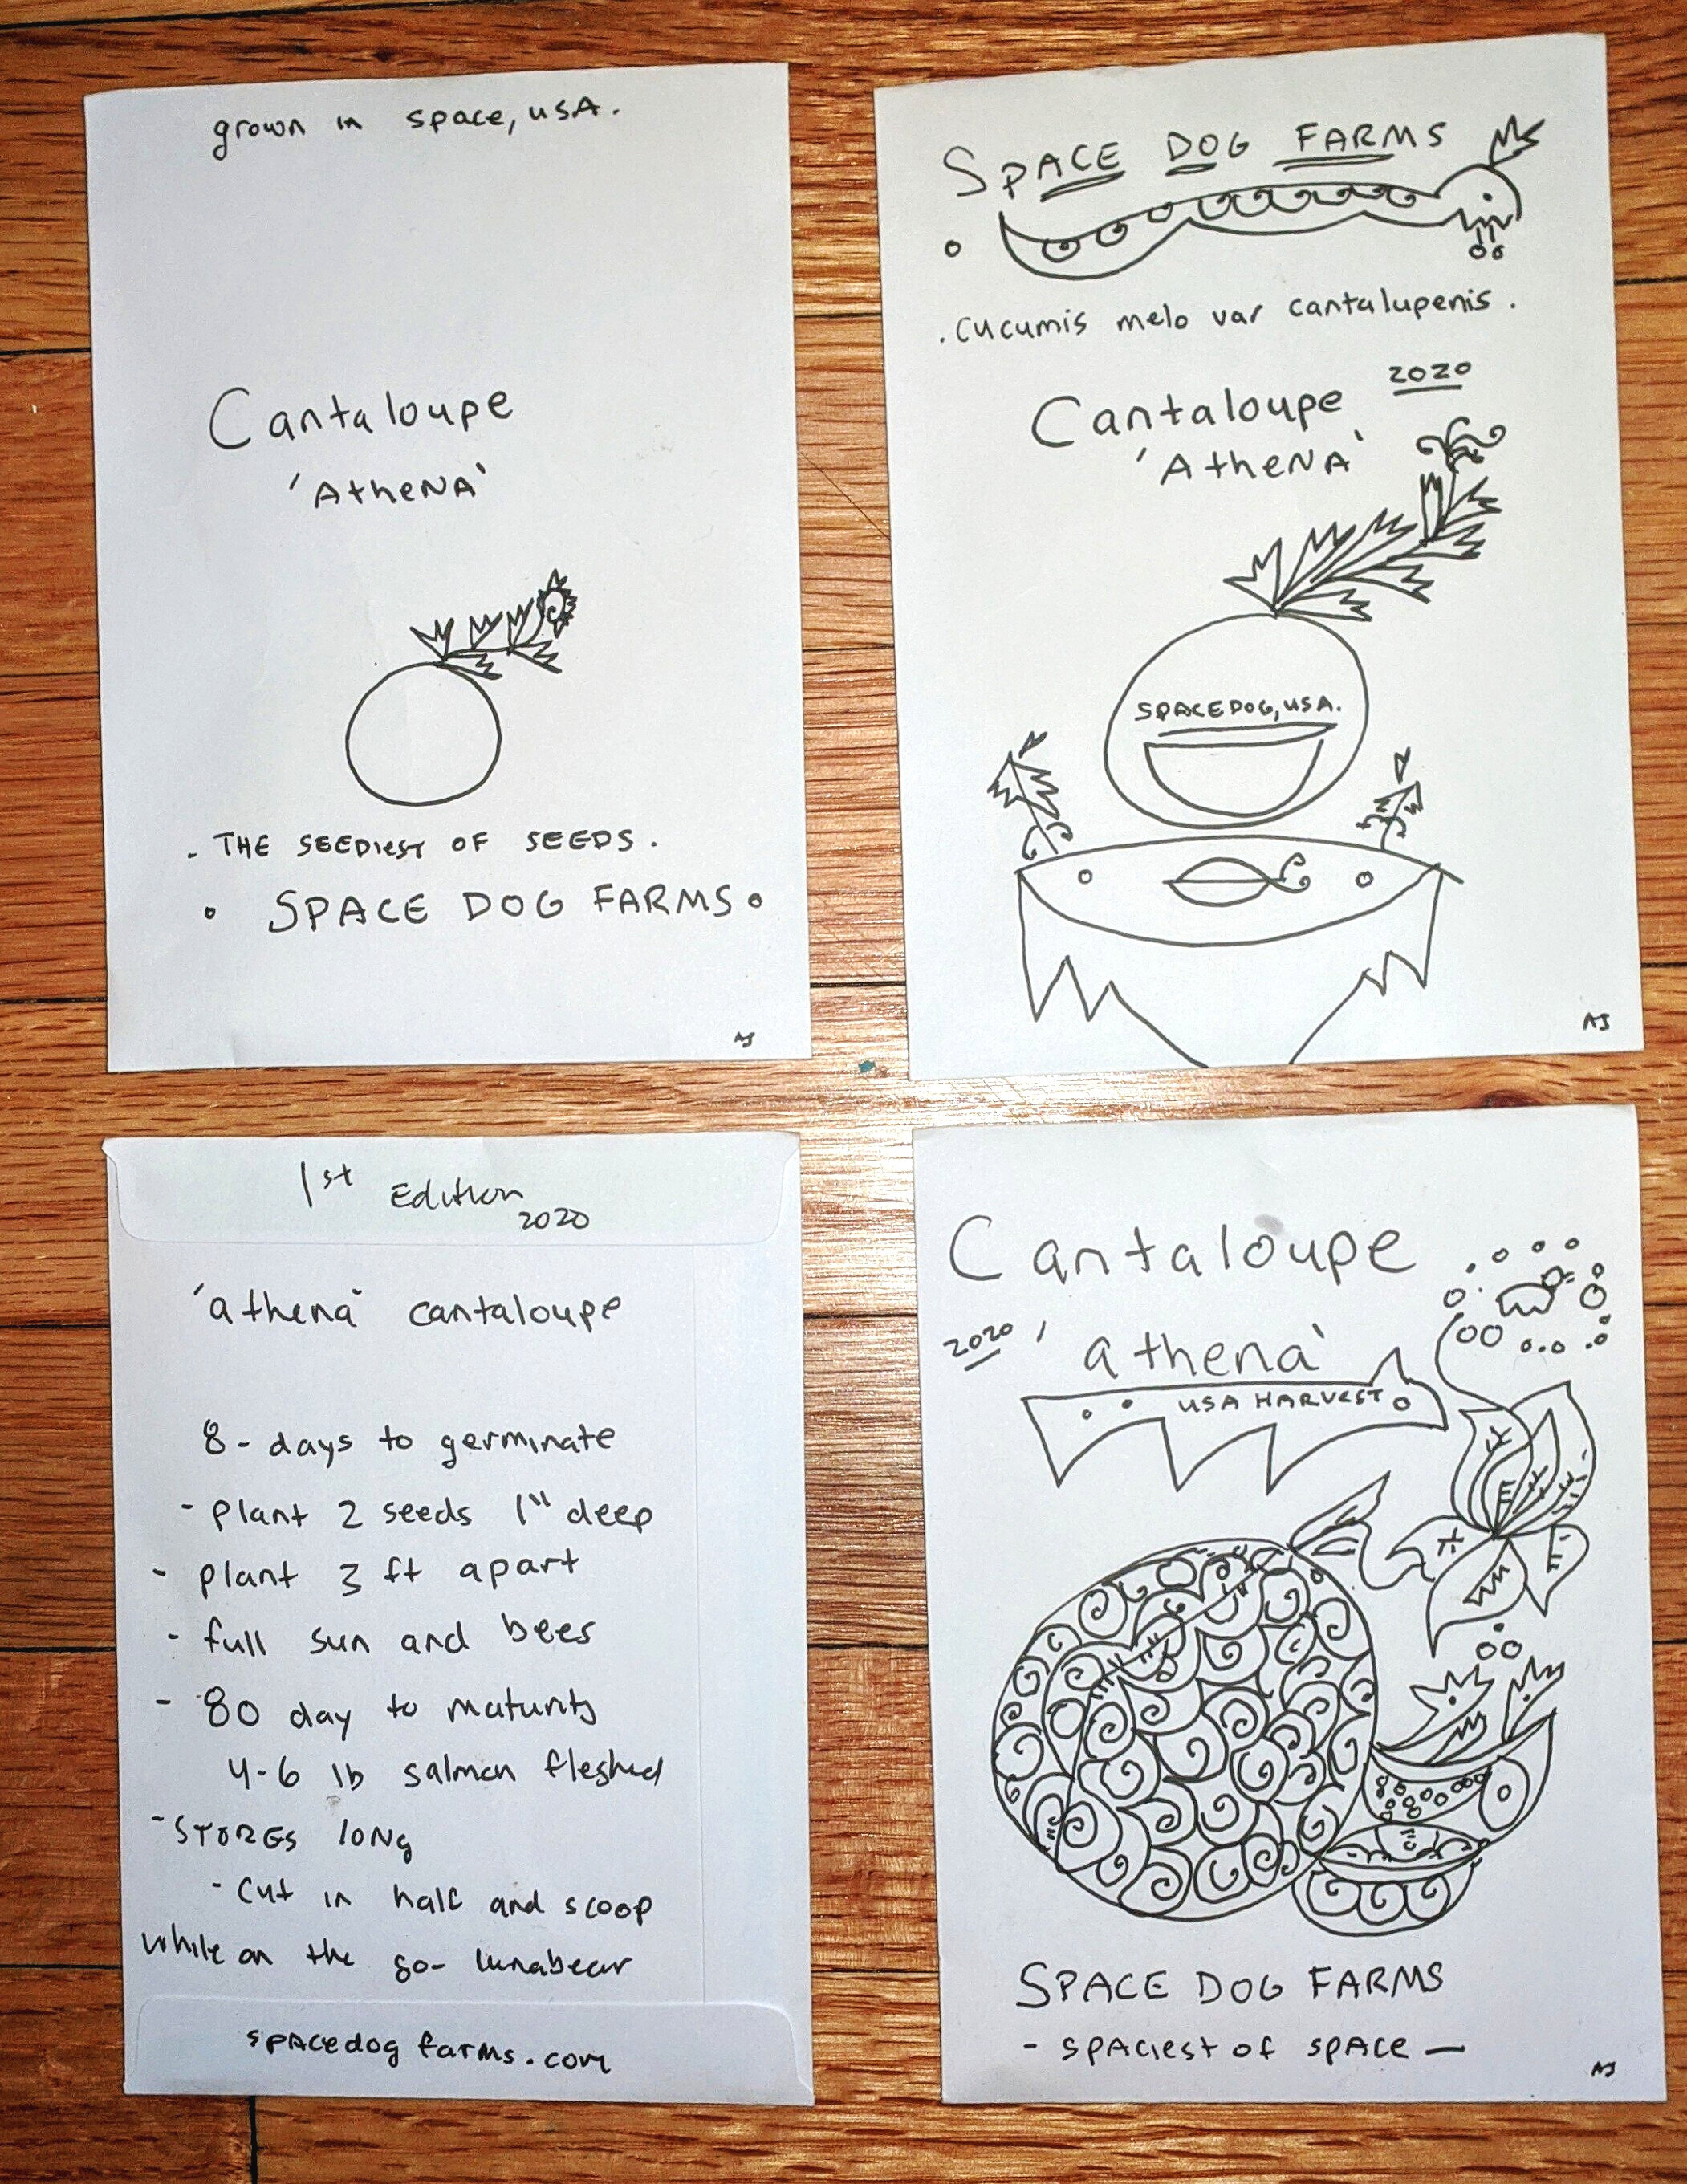 grown in space, USA.
Cantaloupe
'AtheNA'
- THE SEEDIEST OF SEEDS.
SPACE DOG FARMS
AJ
SPACE DOG FARMS
. cucumis melo var cantalupenis .
Cantaloupe 2020
'AtheNA'
SPACEDOG, USA.
AJ
1st Edition
2020
'athena' cantaloupe
8 - days to germinate
- plant 2 seeds 1" deep
- plant 3 ft apart
- full sun and bees
- 80 day to maturity
4-6 lb salmon fleshed
- STORES LONG
- Cut in half and scoop
while on the go - lunabear
spacedog farms.com
Cantaloupe
2020 'athena'
USA HARVEST
SPACE DOG FARMS
- spaciest of space -
AJ